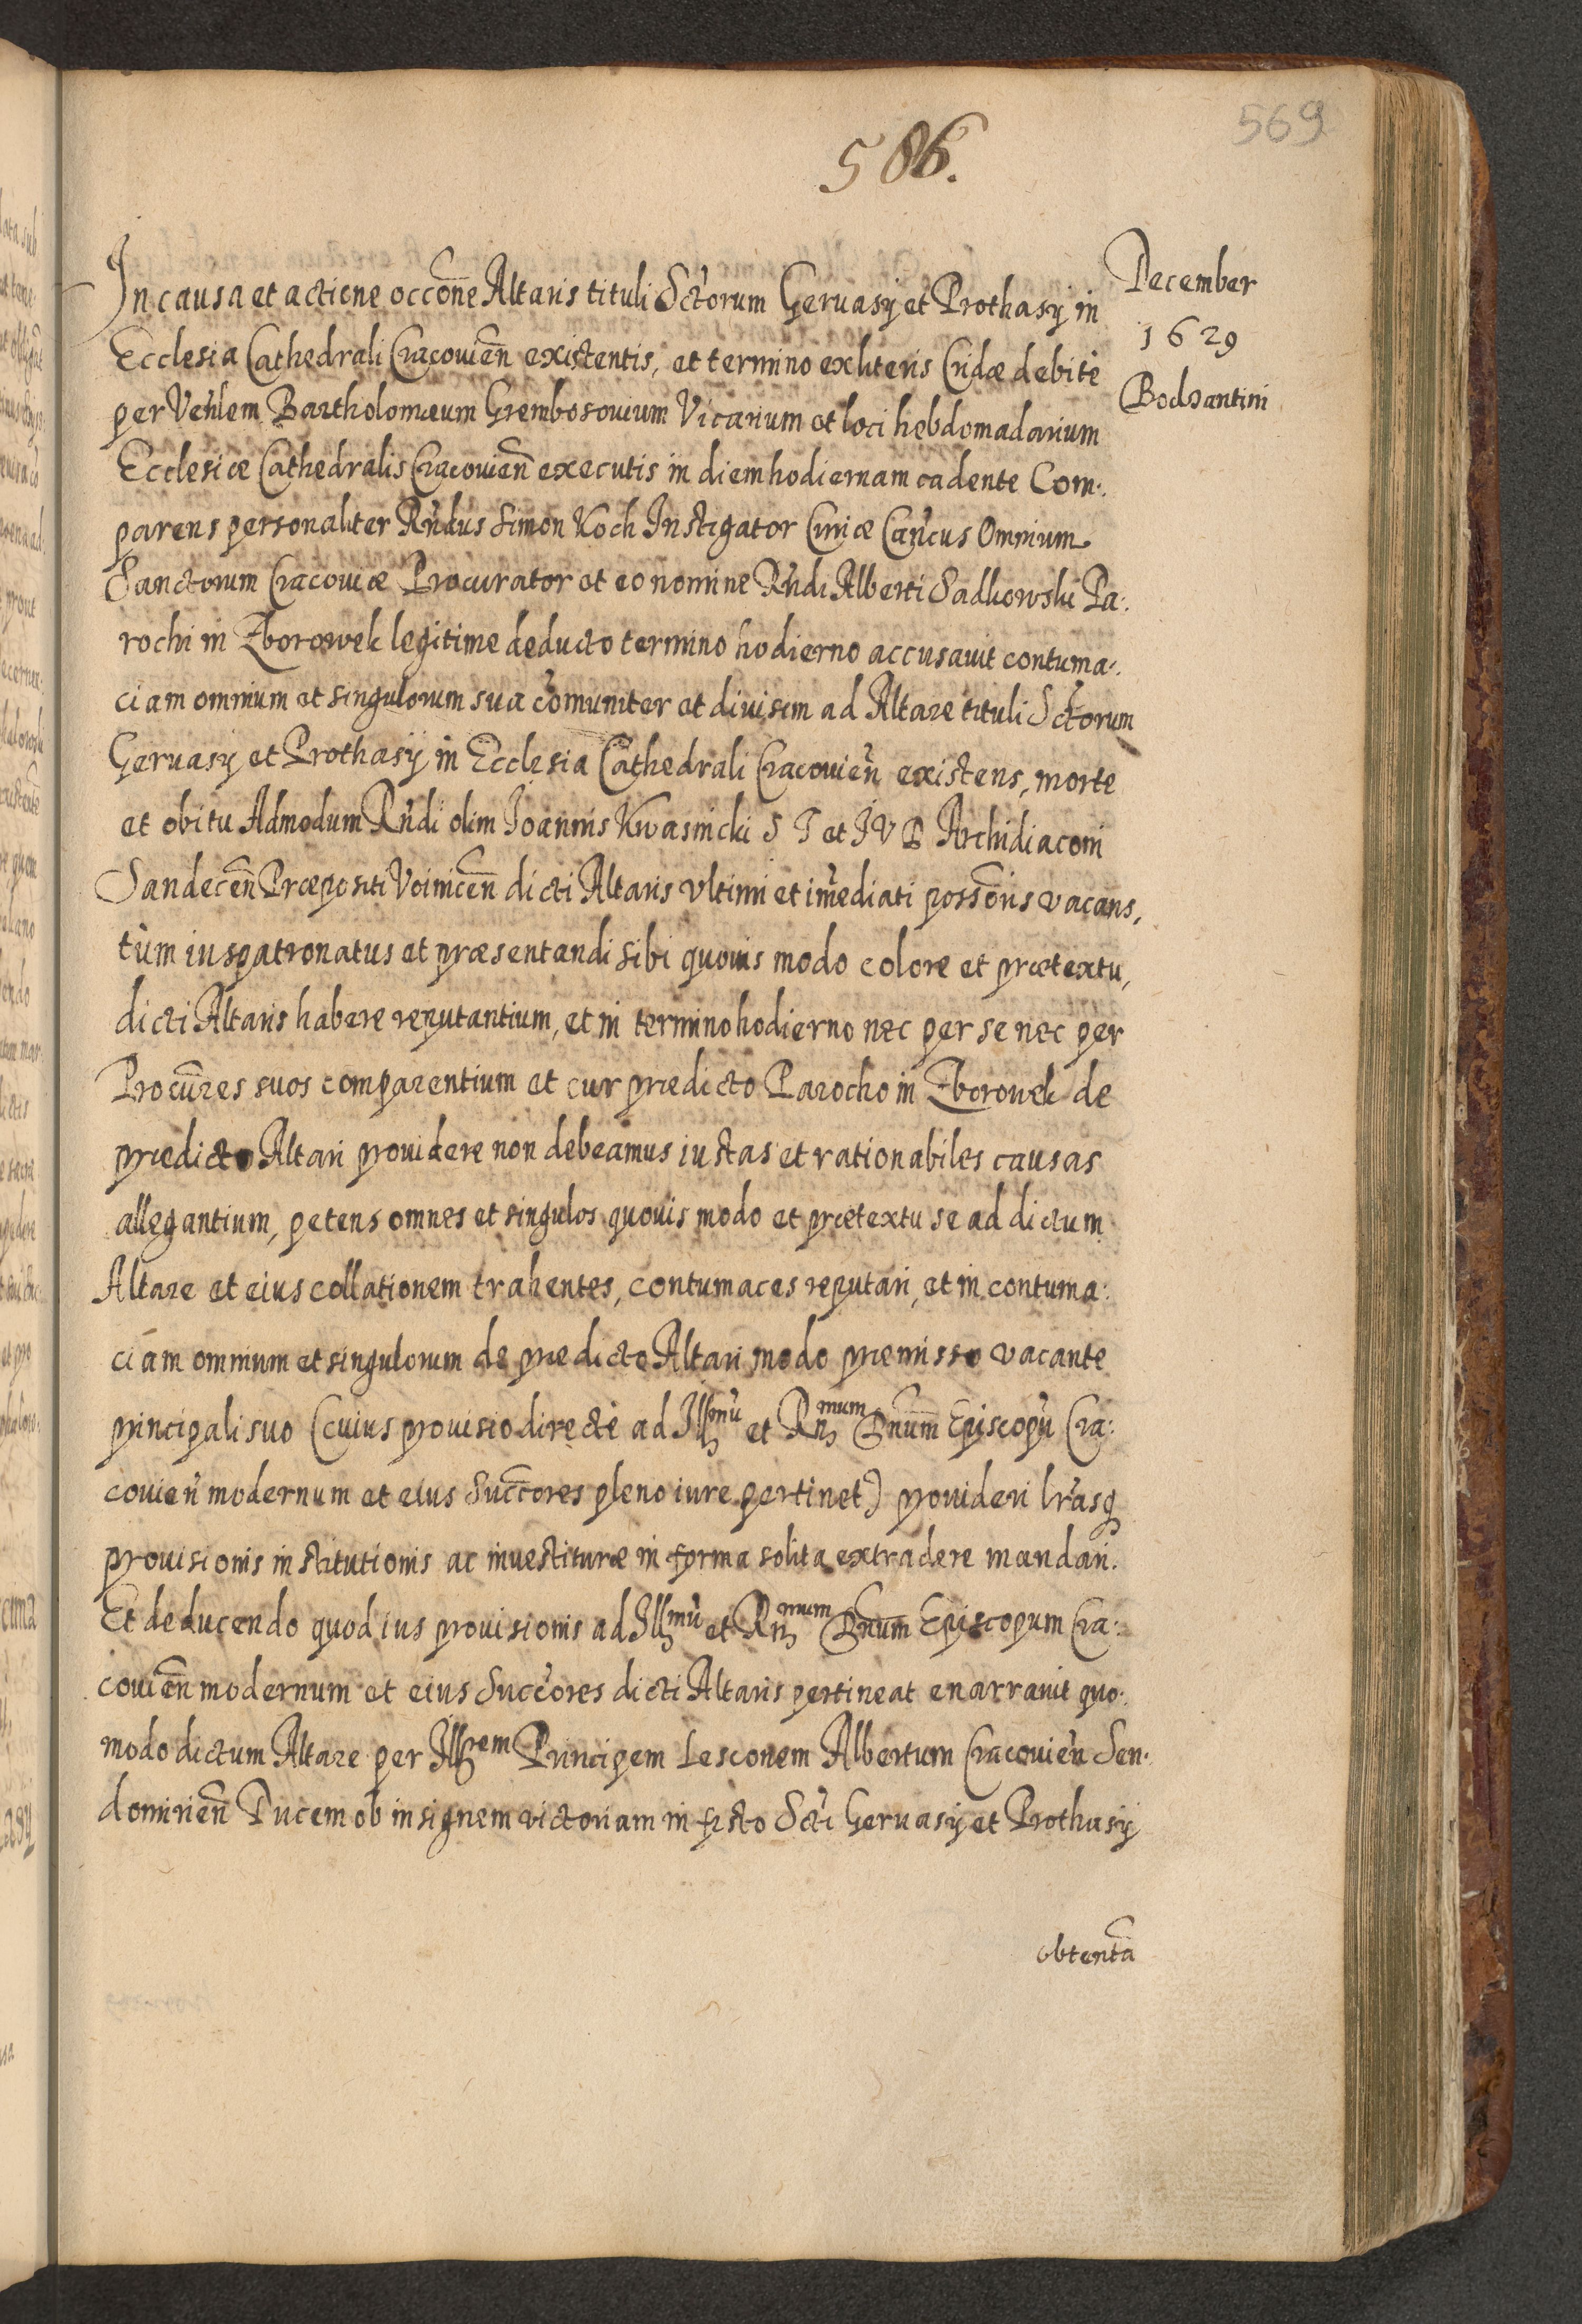 569
586.
December
1629
Bodzantini
In causa et actione occōne Altaris tituli Sctorum Geruasij et Prothasij in
Ecclesia Cathedrali Cracouien̄ existentis, et termino ex literis Cridæ debitè
per Ven̄lem Bartholomæum Grembosouium Vicarium et loci hebdomadarium
Ecclesiæ Cathedralis Cracouien̄ executis in diem hodiernam cadente Com:
parens personaliter Rn̄dus Simon Koch Instigator Curiæ Can̄cus Omnium
Sanctorum Cracouiæ Procurator et eo nomine Rn̄di Alberti Sadkowski Pa:
rochi in Zborowek legitime deducto termino hodierno accusauit contuma:
ciam omnium et singulorum sua com̄uniter et diuisim ad Altare tituli Sctorum
Geruasij et Prothasij in Ecclesia Cathedrali Cracouien̄ existens, morte
et obitu Admodum Rn̄di olim Ioannis Kwasnicki S T et I V D Archidiaconi
Sandecen̄ Præpositi Voinicen̄ dicti Altaris vltimi et im̄ediati possōris vacans,
tùm iuspatronatus et præsentandi sibi quouis modo colore et prætextu,
dicti Altaris habere reputantium, et in termino hodierno nec per se nec per
Procūres suos comparentium et cur prædicto Parocho in Zborowek de
prædicto Altari prouidere non debeamus iustas et rationabiles causas
allegantium, petens omnes et singulos quouis modo et prætextu se ad dictum
Altare et eius collationem trahentes, contumaces reputari, et in contuma:
ciam omnium et singulorum de prædicto Altari modo præmisso vacante
principali suo (cuius prouisio directè ad Illmū et Rn̄mum Dnum̄ Episcopū Cra:
couien̄ modernum et eius Succ̄ores pleno iure pertinet) prouideri lr̄asq
prouisionis institutionis ac inuestituræ in forma solita extradere mandari.
Et deducendo quod ius prouisionis ad Illmū et Rn̄mum Dnum̄ Episcopum Cra:
couien̄ modernum et eius Succ̄ores dicti Altaris pertineat enarrauit quo:
modo dictum Altare per Illrem Principem Lesconem Albertum Cracouien̄ Sen:
domirien̄ Ducem ob insignem victoriam in festo Sc̄ti Geruasij et Prothasij
obtentā